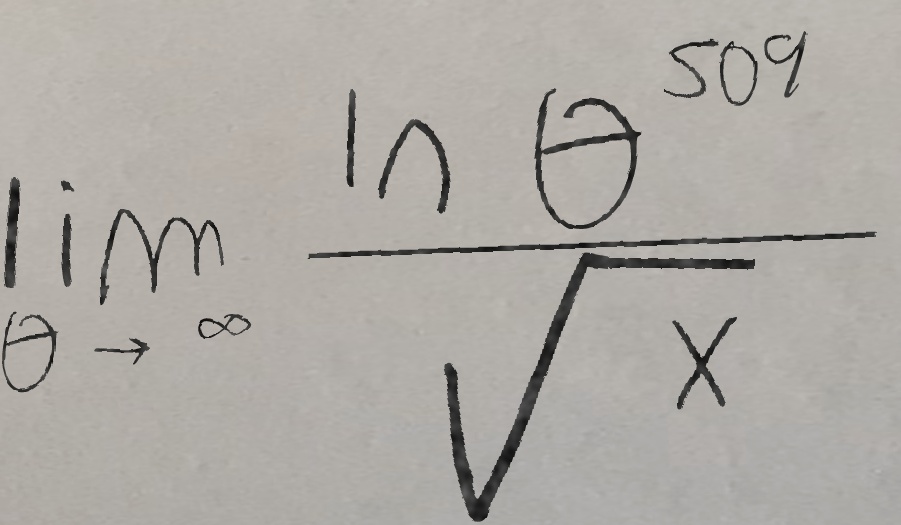 lim θ → ∞ ln θ^509 / √x